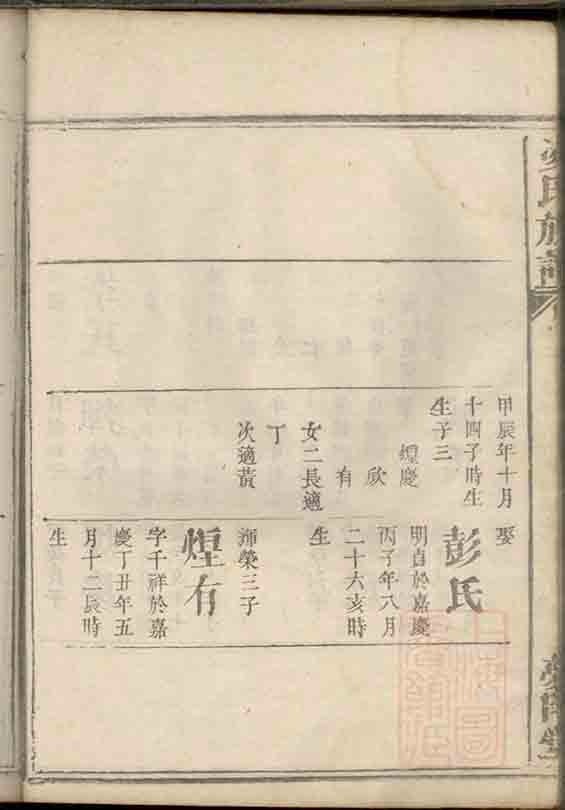 氏族譜
甲辰年十月
十四子時生
生子三
煙慶
欣
有
女二長適
丁
次適黃
娶
彭氏
明貞於嘉慶
丙子年八月
二十六亥時
生
渖榮三子
煙有
字千祥於嘉
慶丁丑年五
月十二辰時
生